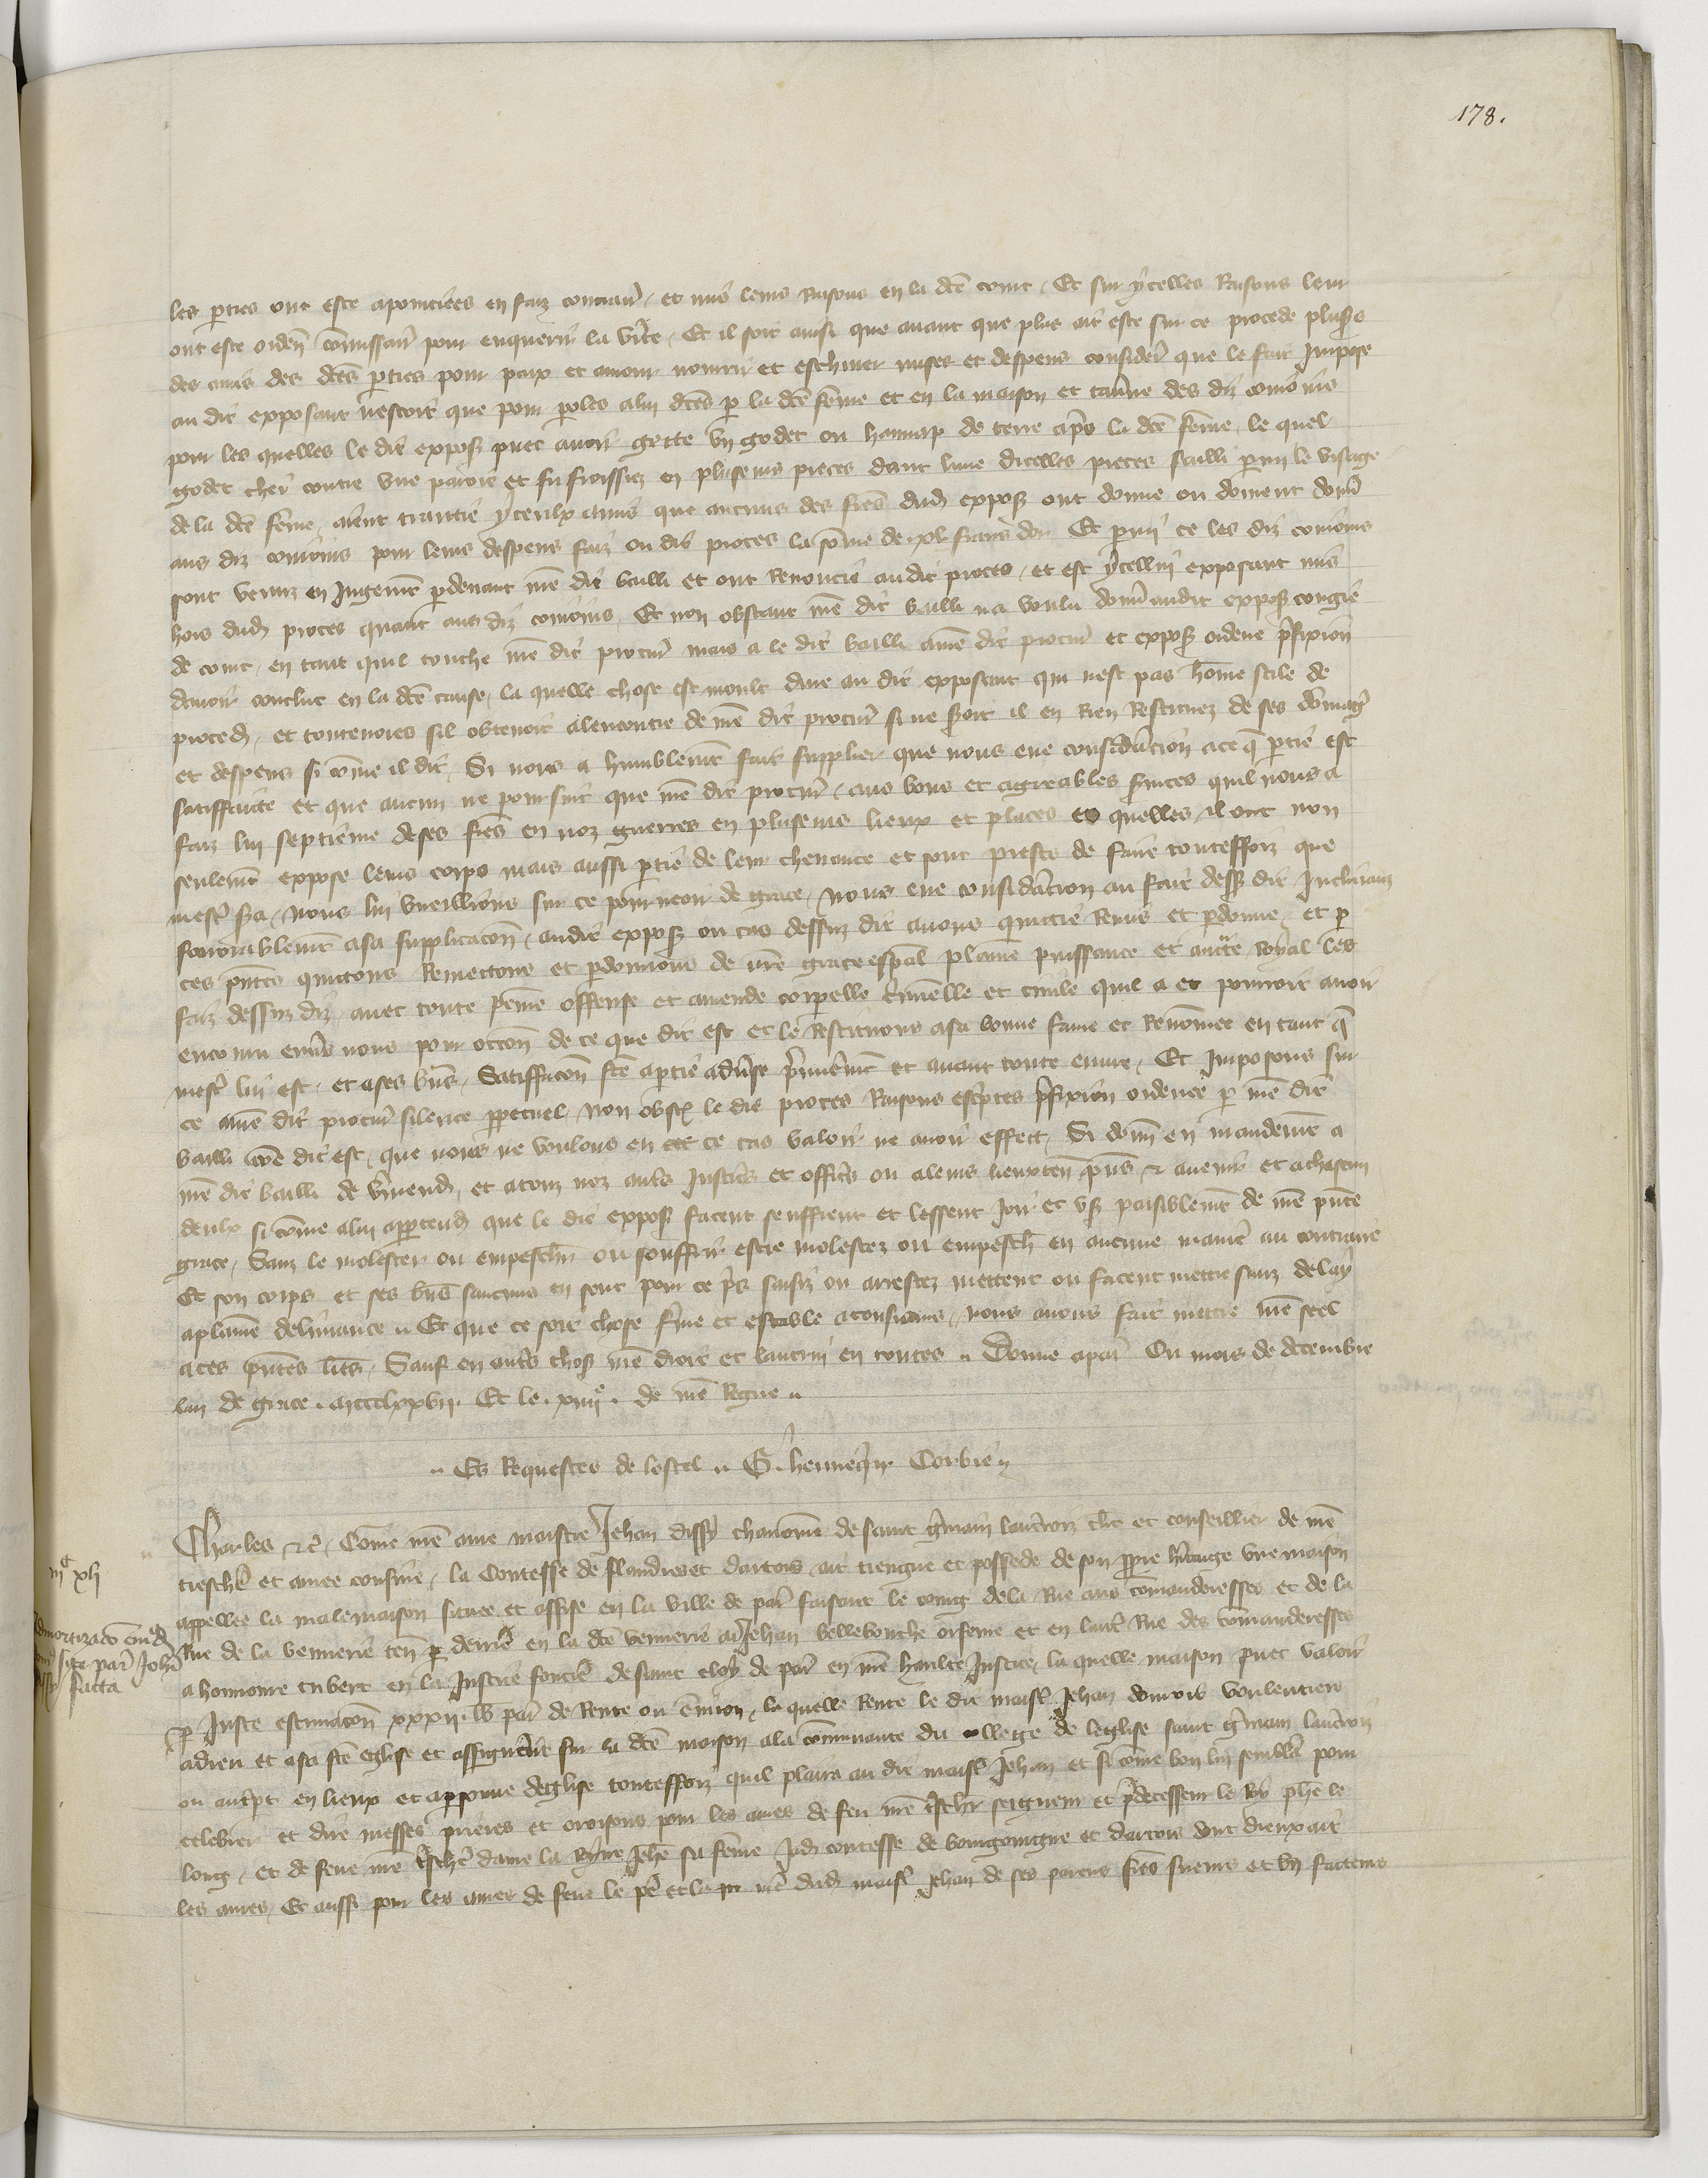 178.
les pties ont este apointiees en faiz contraires et mis leurs raisons en la dce court. Et sur ycelles Raisons leur
ont este orden comissair pour enquerir la verite. Et il soit ainsi que avant que plus ait este sur ce procede plusrs
des amis des dces pties pour paix et amour nourrir et eschiver mises et despens consider que le fait Impose
au dit exposant nestoit que pour poles a lui dces p la dce feme et en la maison et taverne des diz conioins
pour les quelles le dit expos puet avoir gette un godet ou hannap de terre apres la dce feme, le quel
godet chei contre une paroit et fu froissiez en pluseurs pieces dont lune dicelles pieces sailli parmi le visage
de la dce feme, aient traittie yceulx amis que aucuns des freres dud expos ont donne ou doivent donner
aus diz conioins pour leurs despens faiz ou dit proces la some de xl frans dor Et pmi ce les diz conioins
sont venuz en Jugemt pdevant nre dit bailli et ont Renoncie audit proces, et est ycellui exposant mis
hors dud proces quant aus diz conioins, Et non obstant nre dit bailli na voulu donner audit expos congie
de court, en tant quil touche nre dit procur mais a le dit bailli a nre dit procur et expos ordene prefixion
davoir conclut en la dce cause, la quelle chose est moult dure au dit exposant qui nest pas home stile de
proced, et toutevoies sil obtenoit alencontre de nre dit procur si ne seroit il en Rien Restituez de ses domag
et despens si come il dit, Si nous a humblemt fait supplier que nous eue consideracion ace q ptie est
satiffaicte et que aucun ne poursuit que nre dit procur, aus bons et agreables services quil nous a
faiz lui septieme de ses freres en noz guerres en pluseurs lieux et places es quelles il ont non
seulemt expose leurs corps mais aussi ptie de leur chevance et sont prests de faire touteffoiz que
mest sera, Nous lui vueillions sur ce pourveoir de grace, Nous eue consideracion au fait dess dit Inclinanz
favorablemt a sa supplicacon, audit expos ou cas dessuz dit avons quittie Remis et pdonne, et p
ces pntes quittons Remettons et pdonnons de nre grace espal plaine puissance et aucte Royal les
faiz dessuz diz, avec toute peine offense et amende corpelle criminelle et civile quil a et pourroit avoir
encouru envers nous pour occon de ce que dit est et le Restituons a sa bonne fame et Renomee en tant q
mest lui est, et a ses biens, Satiffacon fce a ptie adverse premieremt et avant toute euvre, Et Imposons sur
ce a nre dit procur silence ppetuel, Non obst le dit proces Raisons escriptes prefixion ordenee p nre dit
bailli come dit est, que nous ne voulons en ce cas valoir ne avoir effect. Si donn en mandement a
nre dit bailli de Vermend, et a touz noz autres Justiciers et officiers ou a leurs lieuxten pns & avenir et a chascun
deulx si come a lui appartend que le dit expos facent seuffrent et lessent Joir et user paisiblemt de nre pnte
grace, Sanz le molester ou empescher ou souffrir estre molestez ou empesch en aucune manier au contraire
Et son corps et ses biens saucuns en sont pour ce pris saisiz ou arrestez mettent ou facent mettre sanz delay
a plaine delivrance. Et que ce soit chose ferme et estable a tousiours, nous avons fait mettre nre seel
a ces pntes lettres, Sauf en autres chos nre droit et lautrui en toutes. Donne a paris Ou mois de decembre
lan de grace. mccclxxvii. Et le xiiiie. de nre Regne.
Es Requestes de lostel. G. hennequin. Corbie
iiic xli
Amortizaco cuiusd
dom site par Joh
dissy facta
Charles &c, Come nre ame maistre Jehan dissy chanoine de saint germain laucerrois clerc et conseillier de nre
treschere et amee cousine, la Contesse de flandres et dartois ait tiengne et possede de son ppre heritaige une maison
appellee la malemaison situee et assise en la ville de paris faisant le coing de la Rue aus comanderesses et de la
Rue de la vennerie ten p derriere en la dce vennerie a Jehan bellebouche orfevre et en laut Rue des comanderesses
a honnoure tubert en la Justice fonciere de saint eloy de paris en nre haulte Justice, la quelle maison puet valoir
p Juste estimacon xxxii. lb par de Rente ou environ, la quelle Rente le dit maist Jehan donrois voulentiers
a dieu et a sa ste eglise et assigneroit sur la dce maison a la comunaute du college de leglise saint germain laucerrois
ou autrept en lieux et a personne deglise touteffoiz quil plaira au dit maist Jehan et si come bon lui semblera pour
celebrer et dire messes prieres et oroisons pour les ames de feu nre treschr seigneur et predecesseur le Roy phe le
long, et de feue nre treschr dame la Royne Jehe sa feme Jad contesse de bourgoingne et dartois dont dieux ait
les ames, Et aussi pour les ames de feue le pere et la mere dud maist Jehan de ses parens freres sueurs et bienfaiteurs